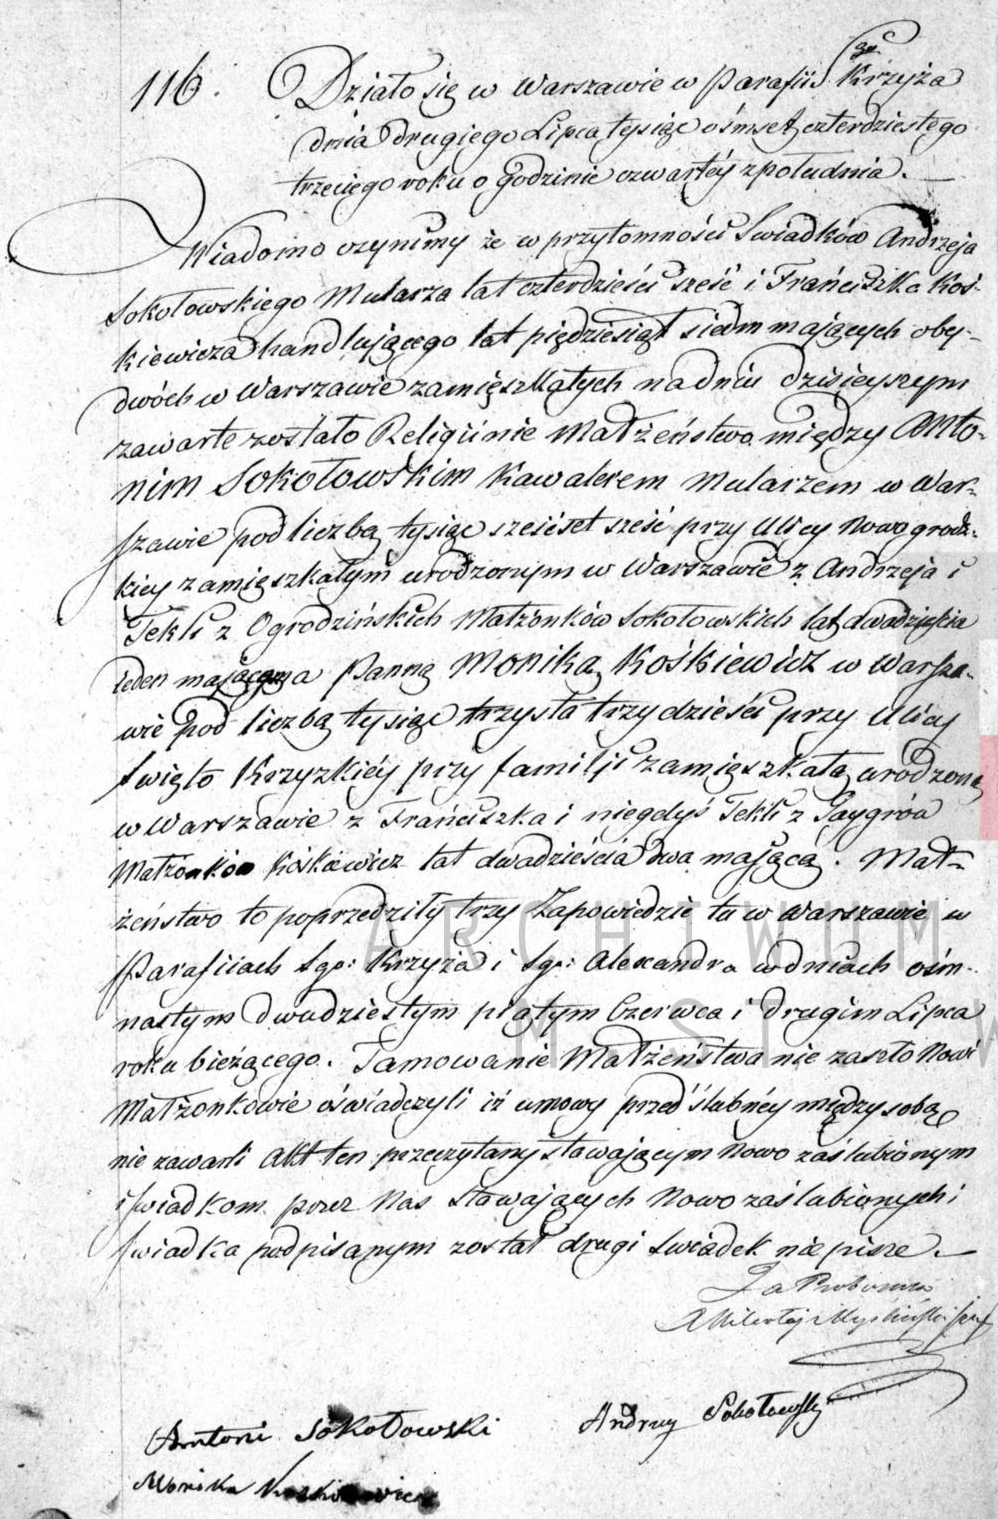 116. Działo się w Warszawie w Parafii Sgo. Krzyża
dnia drugiego Lipca tysiąc ośmset czterdziestego
trzeciego roku o godzinie czwartéy z południa. —
Wiadomo czynimy że w przytomności Swiadków Andrzeja
Sokołowskiego Mularza lat czterdzieści sześć i Franciszka Koś-
kiewicza handlującego lat pięćdziesiąt siedm mających oby-
dwóch w Warszawie zamięszkałych na dniu dzisieyszym
zawarte zostało Religiinie Małżeństwo między Anto-
nim Sokołowskim Kawalerem Mularzem w War-
szawie pod liczbą tysiąc sześćset sześć przy Ulicy Nowogrodz-
kiey zamięszkałym urodzonym w Warszawie z Andrzeja i
Tekli z Ogrodzińskich Małżonków Sokołowskich lat dwadzieścia
ieden mającym a Panną Moniką Kośkiewicz w Warsza-
wie pod liczbą tysiąc trzysta trzydzieści przy Ulicy
Swięto Krzyzkiéy przy familji zamięszkałą urodzoną
w Warszawie z Franciszka i niegdyś Tekli z Gaygrów
Małżonków Kośkiewicz lat dwadzieścia dwa mającą. Mał-
żeństwo to poprzedziły trzy Zapowiedzie tu w Warszawie w
Parafiiach Sgo: Krzyża i Sgo: Alexandra w dniach ośm-
nastym dwudziestym piątym Czerwca i drugim Lipca
roku bieżącego. Tamowanie Małżeństwa nie zaszło Nowi
Małżonkowie oświadczyli iż umowy przedślubnéy między sobą
nie zawarli Akt ten przeczytany stawającym Nowo zaślubionym
i świadkom przez Nas stawających Nowo zaślubionych i
świadka podpisanym został drugi świadek nie pisze. —
Za Proboszcza
X Mikołaj
Antoni Sokołowski Andrzey Sokołowski
Monika
ARCHIWUM
M ST W